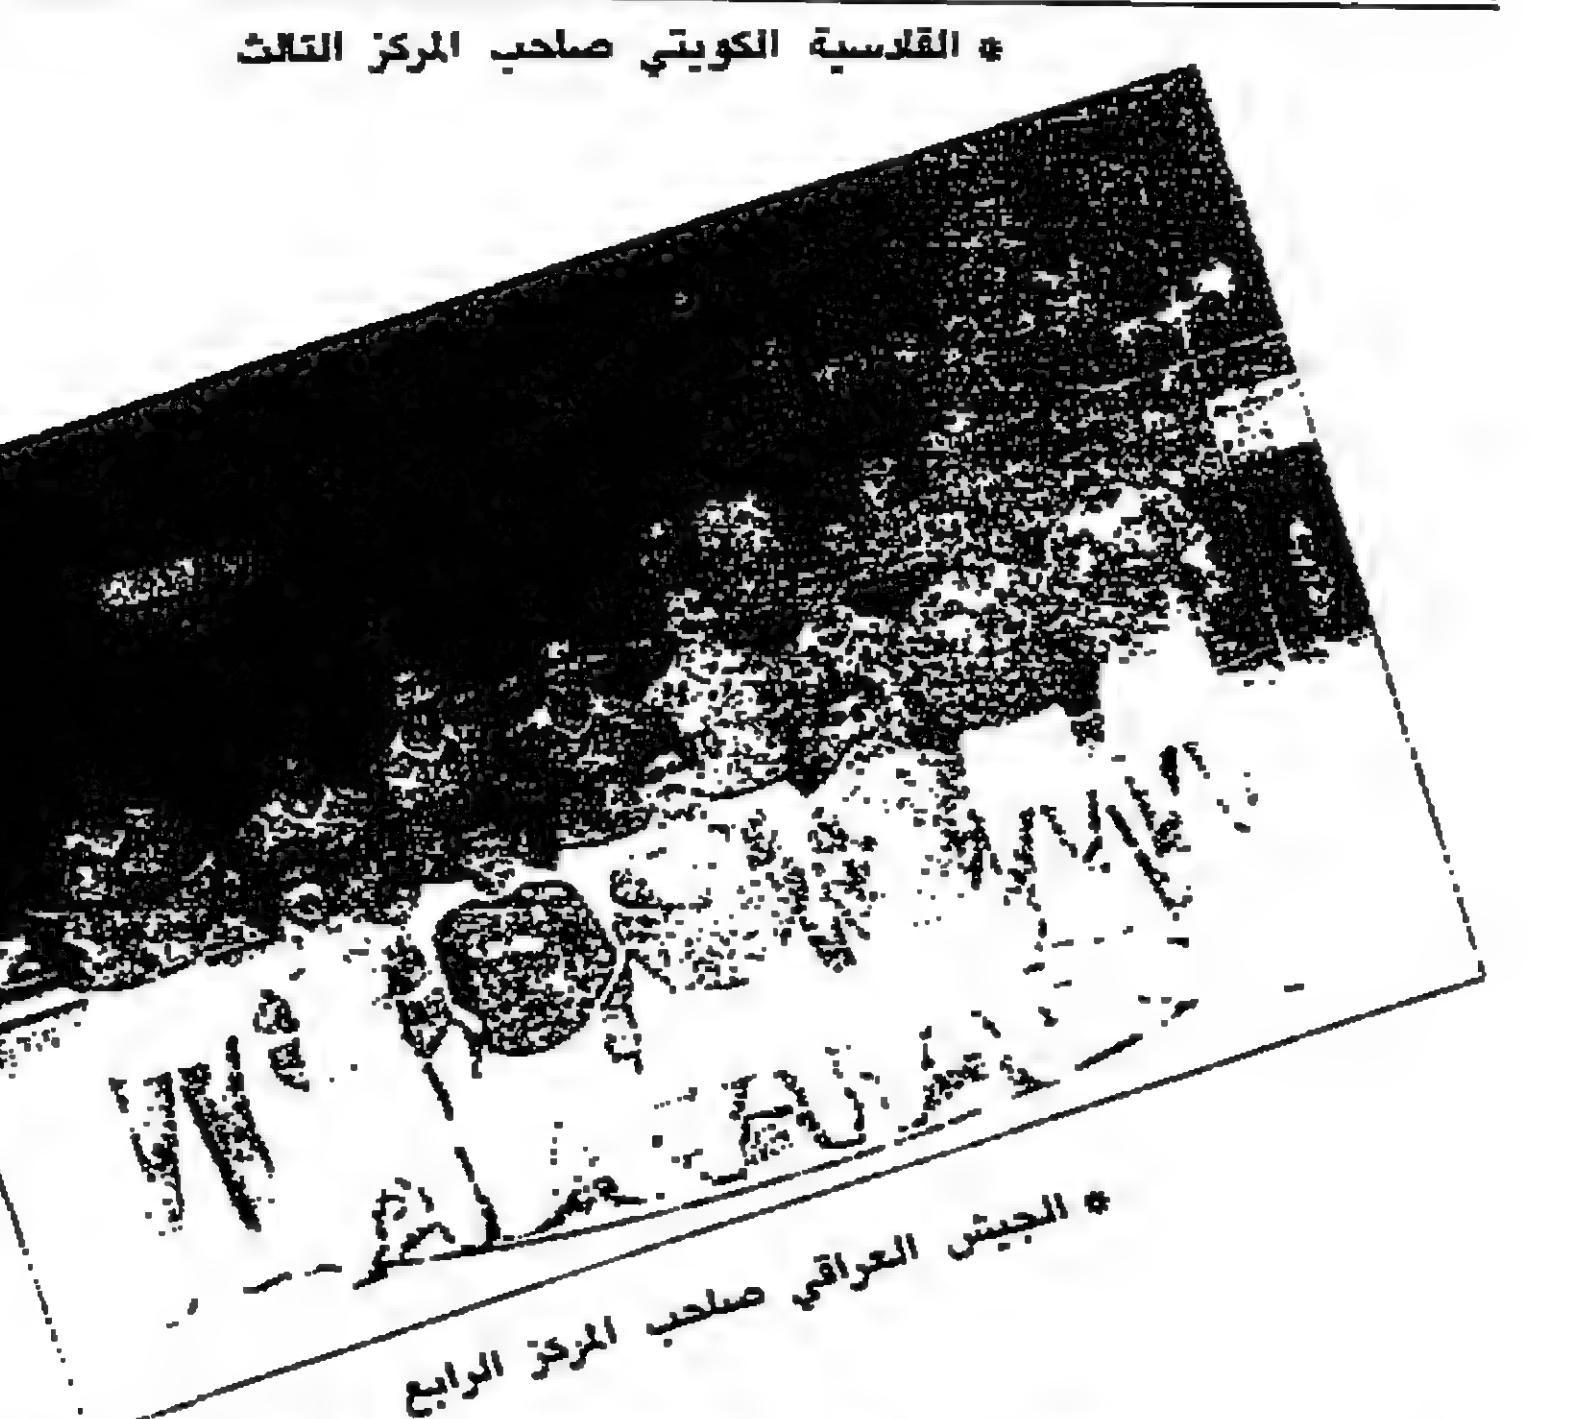 * القادسية الكويتي صاحب المركز الثالث
* الجيش العراقي صاحب المركز الرابع